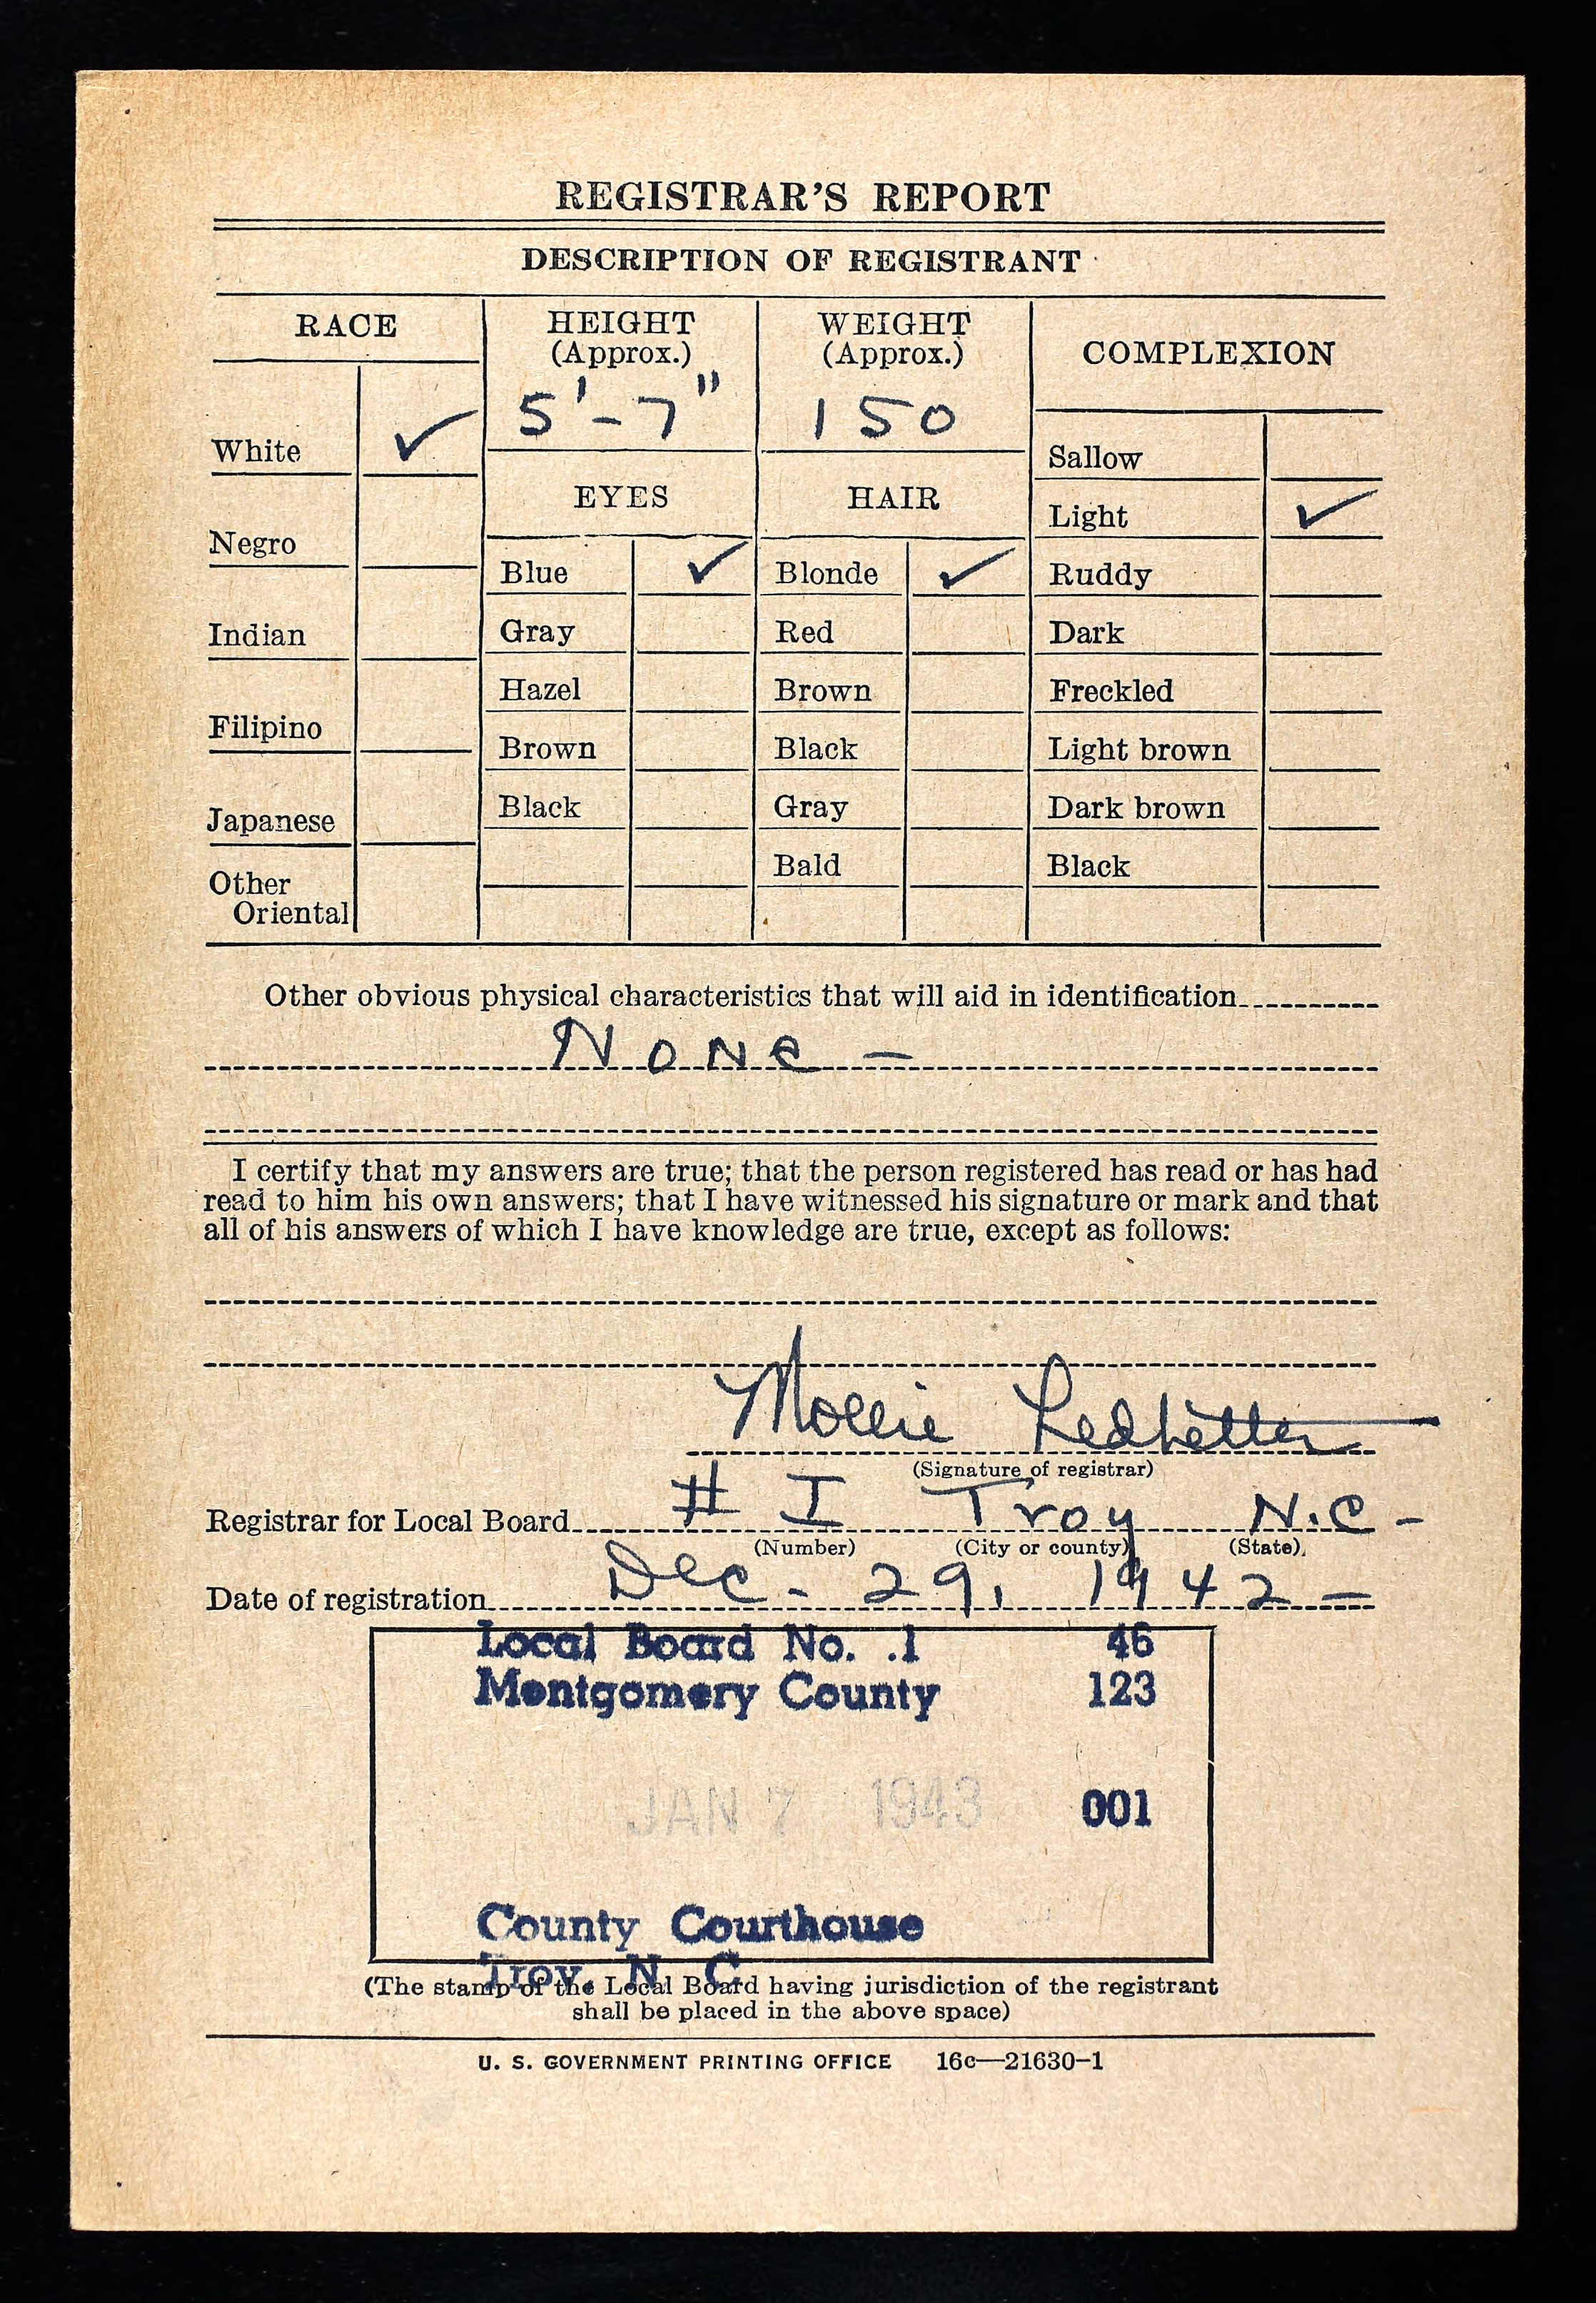 REGISTRAR'S REPORT
DESCRIPTION OF REGISTRANT
RACE HEIGHT (Approx.) WEIGHT (Approx.) COMPLEXION
5'-7" 150
White ✓ Sallow
EYES HAIR Light ✓
Negro Blue ✓ Blonde ✓ Ruddy
Indian Gray Red Dark
Hazel Brown Freckled
Filipino Brown Black Light brown
Japanese Black Gray Dark brown
Bald Black
Other
Oriental
Other obvious physical characteristics that will aid in identification
None —
I certify that my answers are true; that the person registered has read or has had
read to him his own answers; that I have witnessed his signature or mark and that
all of his answers of which I have knowledge are true, except as follows:
Mollie Ledbetter
(Signature of registrar)
Registrar for Local Board # I Troy N.C -
(Number) (City or county) (State)
Date of registration Dec - 29, 1942 —
Local Board No. .1 46
Montgomery County 123
JAN 7 1943 001
County Courthouse
Troy, N. C
(The stamp of the Local Board having jurisdiction of the registrant
shall be placed in the above space)
U. S. GOVERNMENT PRINTING OFFICE 16c—21630-1